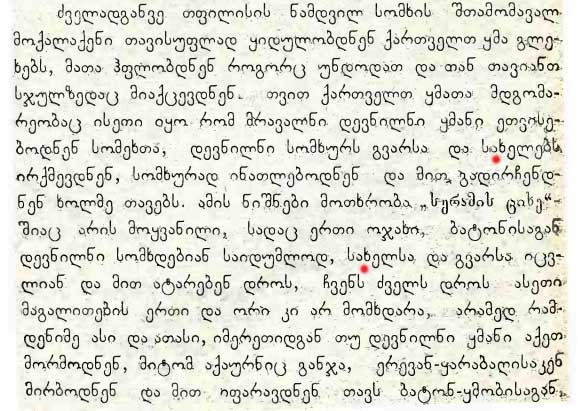 ძველადგანვე თფილისის ნამდვილ სომხის შთამომავალ
მოქალაქენი თავისუფლად ყიდულობდნენ ქართველთ ყმა გლე-
ხებს, მათა ჰფლობდნენ როგორც უნდოდათ და თან თავიანთ
სჯულზედაც მიაქცევდნენ. თვით ქართველთ ყმათა მდგომა-
რეობაც ისეთი იყო რომ მრავალნი დევნილნი ყმანი ეთვისე-
ბოდნენ სომეხთა, დევნილნი სომხურს გვარსა და სახელებს
ირქმევდნენ, სომხურად ინათლებოდნენ და მით გადირჩენდ-
ნენ ხოლმე თავებს. ამის ნიშნები მოთხრობა „სურამის ციხე“-
შიაც არის მოყვანილი, სადაც ერთი ოჯახი, ბატონისაგან
დევნილნი სომხდებიან საიდუმლოდ, სახელსა და გვარსა იცვ-
ლიან და მით ატარებენ დროს, ჩვენს ძველს დროს ასეთი
მაგალითების ერთი და ორი კი არ მომხდარა, არამედ რამ-
დენიმე ასი და ათასი, იმერეთიდგან თუ დევნილნი ყმანი აქეთ
მორმოდნენ, მიტომ აქაურნიც განჯა, ერევან-ყარაბაღისაკენ
მირბოდნენ და მით იფარავდნენ თავს ბატონ-ყმობისაგან,